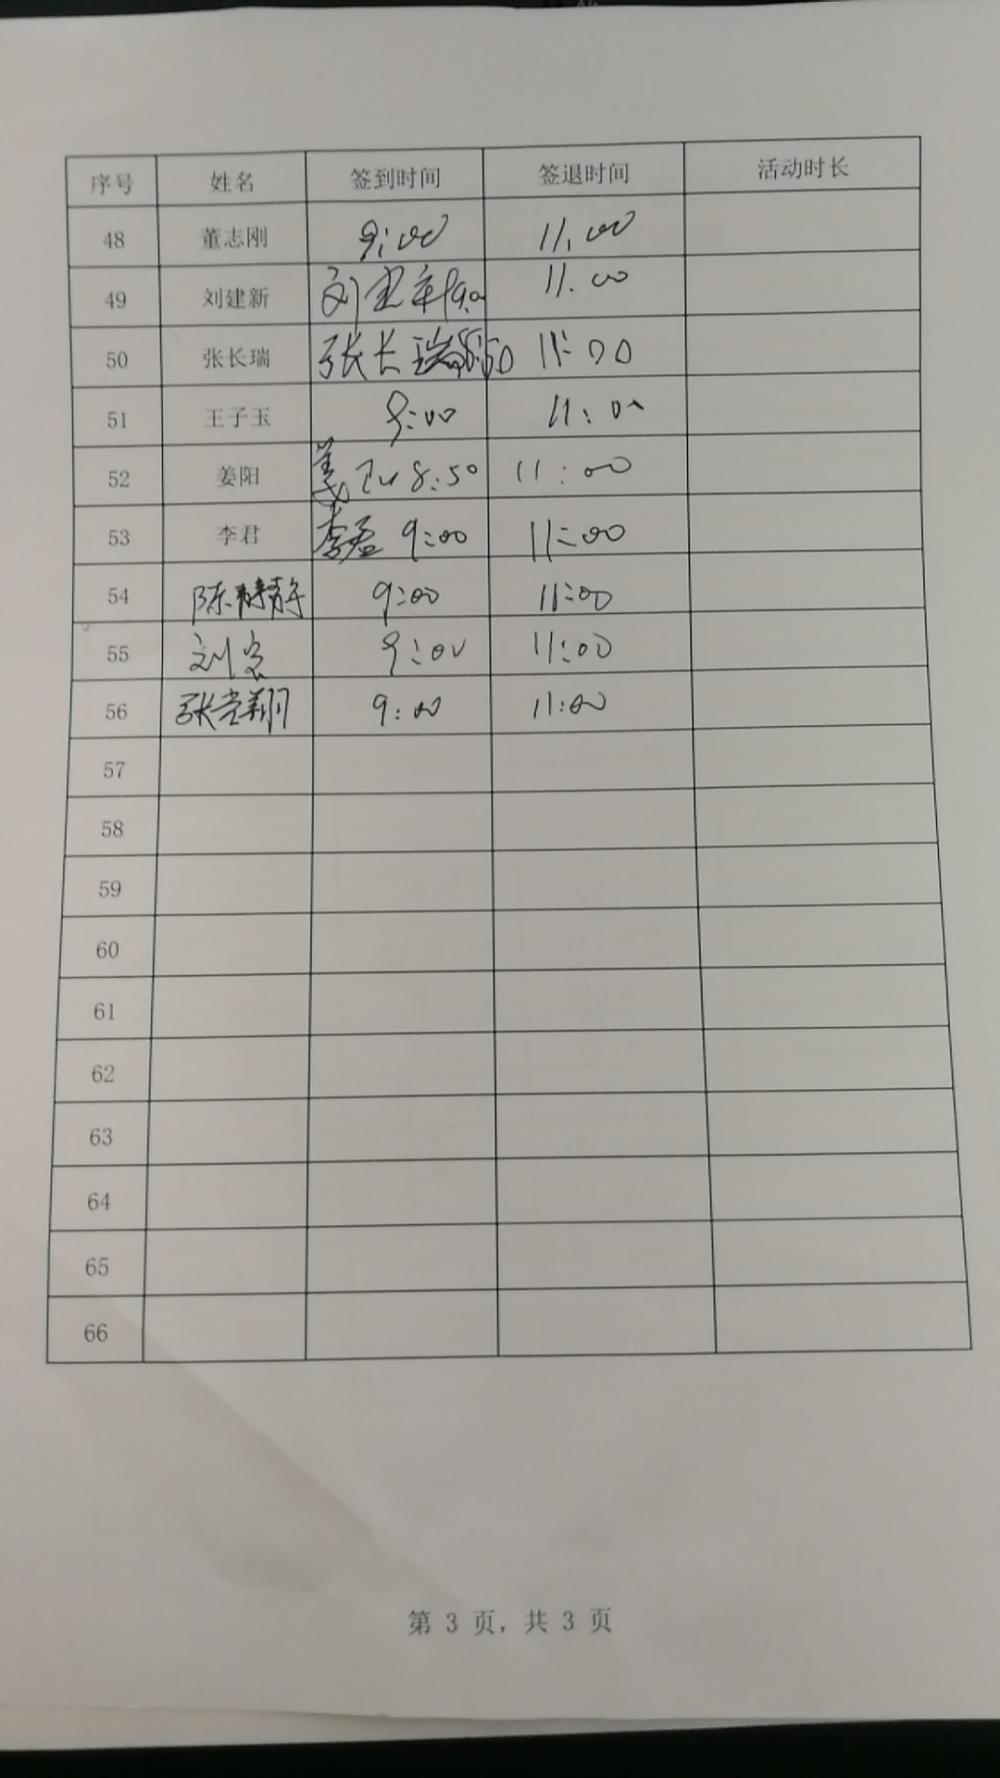 序号 姓名 签到时间 签退时间 活动时长
48 董志刚 9:00 11.00
49 刘建新 刘建新9:00 11.00
50 张长瑞 张长瑞8:50 11:00
51 王子玉 9:00 11:00
52 姜阳 姜阳 8:50 11:00
53 李君 李君 9:00 11:00
54 陈静静 9:00 11:00
55 刘宏 9:00 11:00
56 张 翔 9:00 11:00
57
58
59
60
61
62
63
64
65
66
第 3 页，共 3 页